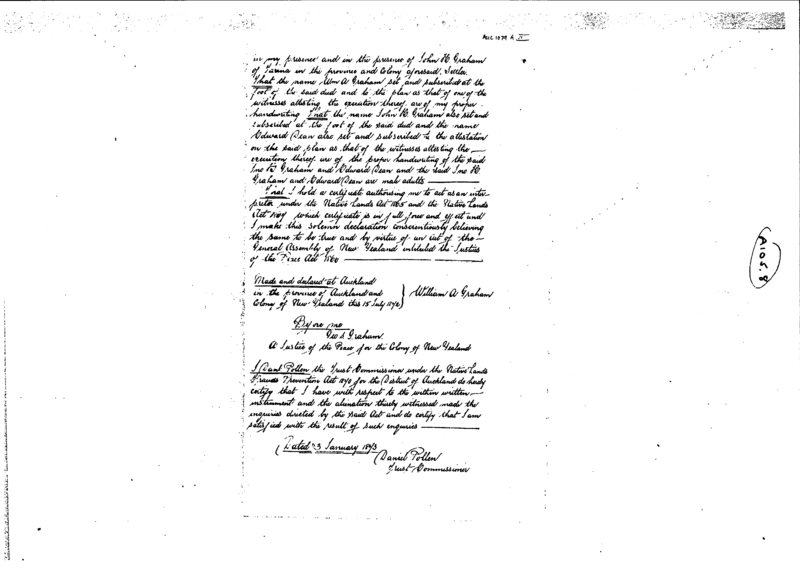 in my presence and in the presence of John H Graham
of Parina in the province and Colony aforesaid Settler
That the name Wm A Graham set and subscribed at the
foot of the said deed and to the plan as that of one of the
witnesses attesting the execution thereof are of my proper
handwriting That the name John H Graham also set and
subscribed at the foot of the said deed and the name
Edward Dean also set and subscribed to the attestation
on the said plan as that of the witnesses attesting the
execution thereof are of the proper handwriting of the said
Jno H Graham and Edward Dean and the said Jno H
Graham and Edward Dean are male adults
That I hold a certificate authorising me to act as an inter-
preter under the Native Lands Act 1865 and the Native Lands
Act 1867 which certificate is in full force and effect and
I make this solemn declaration conscientiously believing
the same to be true and by virtue of an Act of the
General Assembly of New Zealand intituled the Justices
of the Peace Act 1866
Made and declared at Auckland
in the province of Auckland and
Colony of New Zealand this 15 July
William A Graham
Before me
Geo S Graham
A Justice of the Peace for the Colony of New Zealand
I Danl Pollen the Trust Commissioner under the Native Lands
Frauds Prevention Act 1870 for the District of Auckland do hereby
certify that I have with respect to the within written
instrument and the alienation thereby witnessed made the
enquiries directed by the said Act and do certify that I am
satisfied with the result of such enquiries
Dated 23 January 1873
Daniel Pollen
Trust Commissioner
A105.8